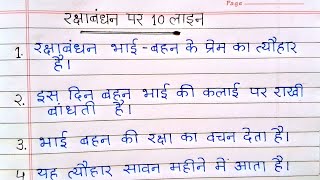 Page
रक्षाबंधन पर 10 लाइन
1. रक्षाबंधन भाई-बहन के प्रेम का त्यौहार
है।
2. इस दिन बहन भाई की कलाई पर राखी
बांधती है।
3. भाई बहन की रक्षा का वचन देता है।
4 यह त्यौहार सावन महीने में आता है।